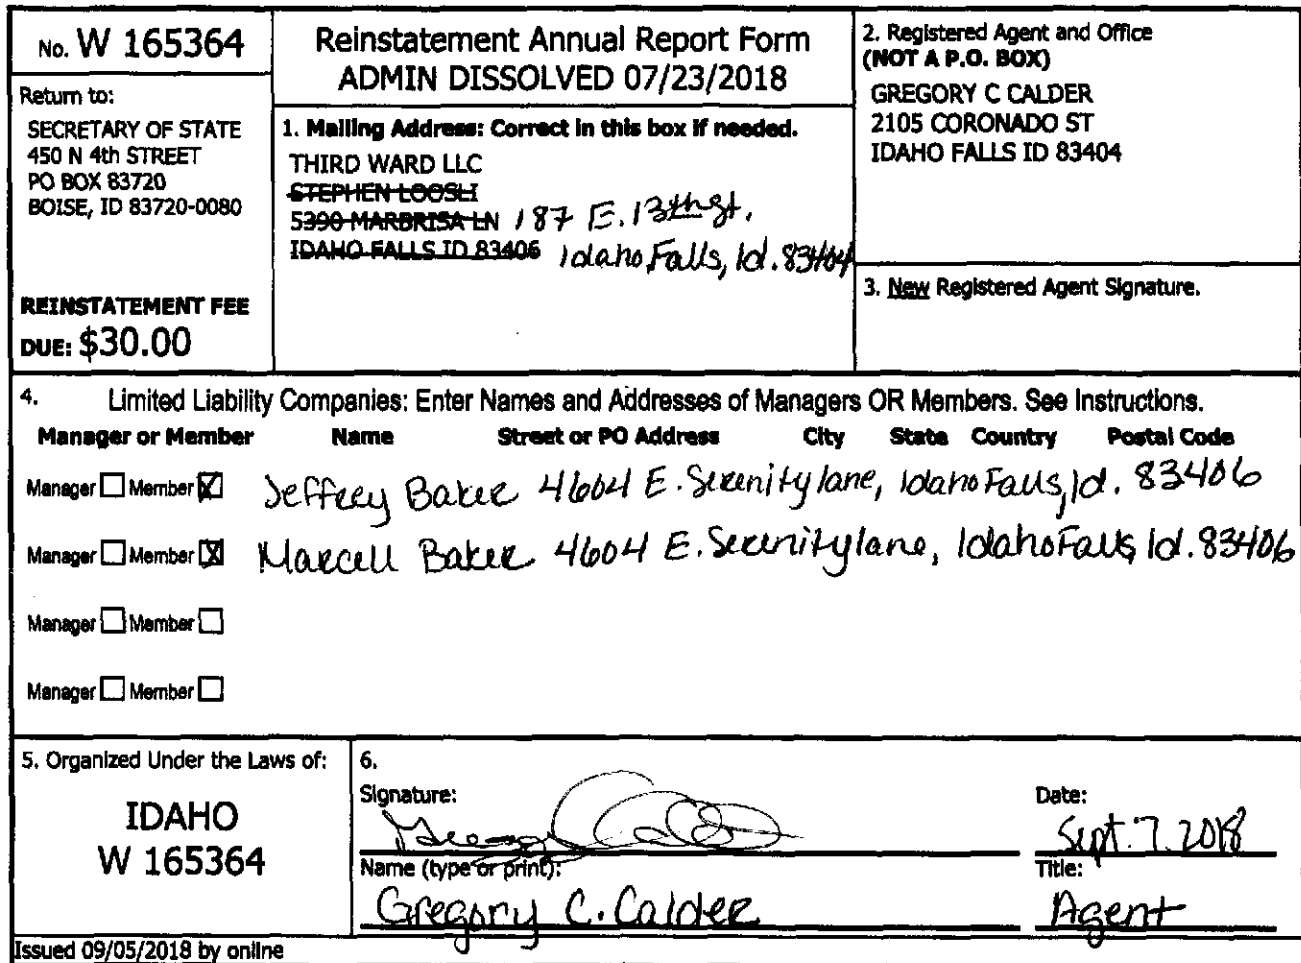 No. W 165364
Return to:
SECRETARY OF STATE
450 N 4th STREET
PO BOX 83720
BOISE, ID 83720-0080
REINSTATEMENT FEE
DUE: $30.00
Reinstatement Annual Report Form
ADMIN DISSOLVED 07/23/2018
1. Mailing Address: Correct in this box if needed.
THIRD WARD LLC
STEPHEN LOOSLI
5390 MARBRISA LN 187 E. 13th St.
IDAHO FALLS ID 83406 Idaho Falls, Id. 83404
2. Registered Agent and Office
(NOT A P.O. BOX)
GREGORY C CALDER
2105 CORONADO ST
IDAHO FALLS ID 83404
3. New Registered Agent Signature.
4. Limited Liability Companies: Enter Names and Addresses of Managers OR Members. See Instructions.
Manager or Member Name Street or PO Address City State Country Postal Code
Manager Member X Jeffrey Baker 4604 E. Serenity lane, Idaho Falls, Id. 83406
Manager Member X Marcell Baker 4604 E. Serenity lane, Idaho Falls Id. 83406
Manager Member
Manager Member
5. Organized Under the Laws of:
IDAHO
W 165364
6.
Signature: Date:
Sept. 7. 2018
Name (type or print): Title:
Gregory C. Calder Agent
Issued 09/05/2018 by online